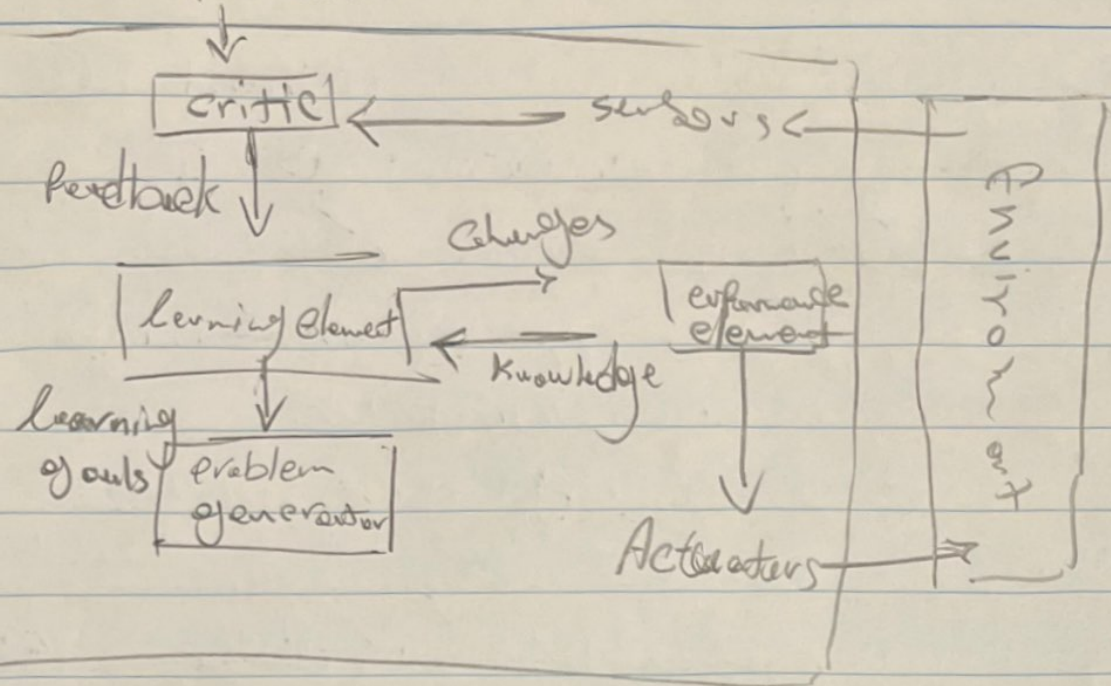 critic
sensors
feedback
changes
lerning element
erformance
element
knowledge
learning
goals
problem
generator
Actuators
Environment